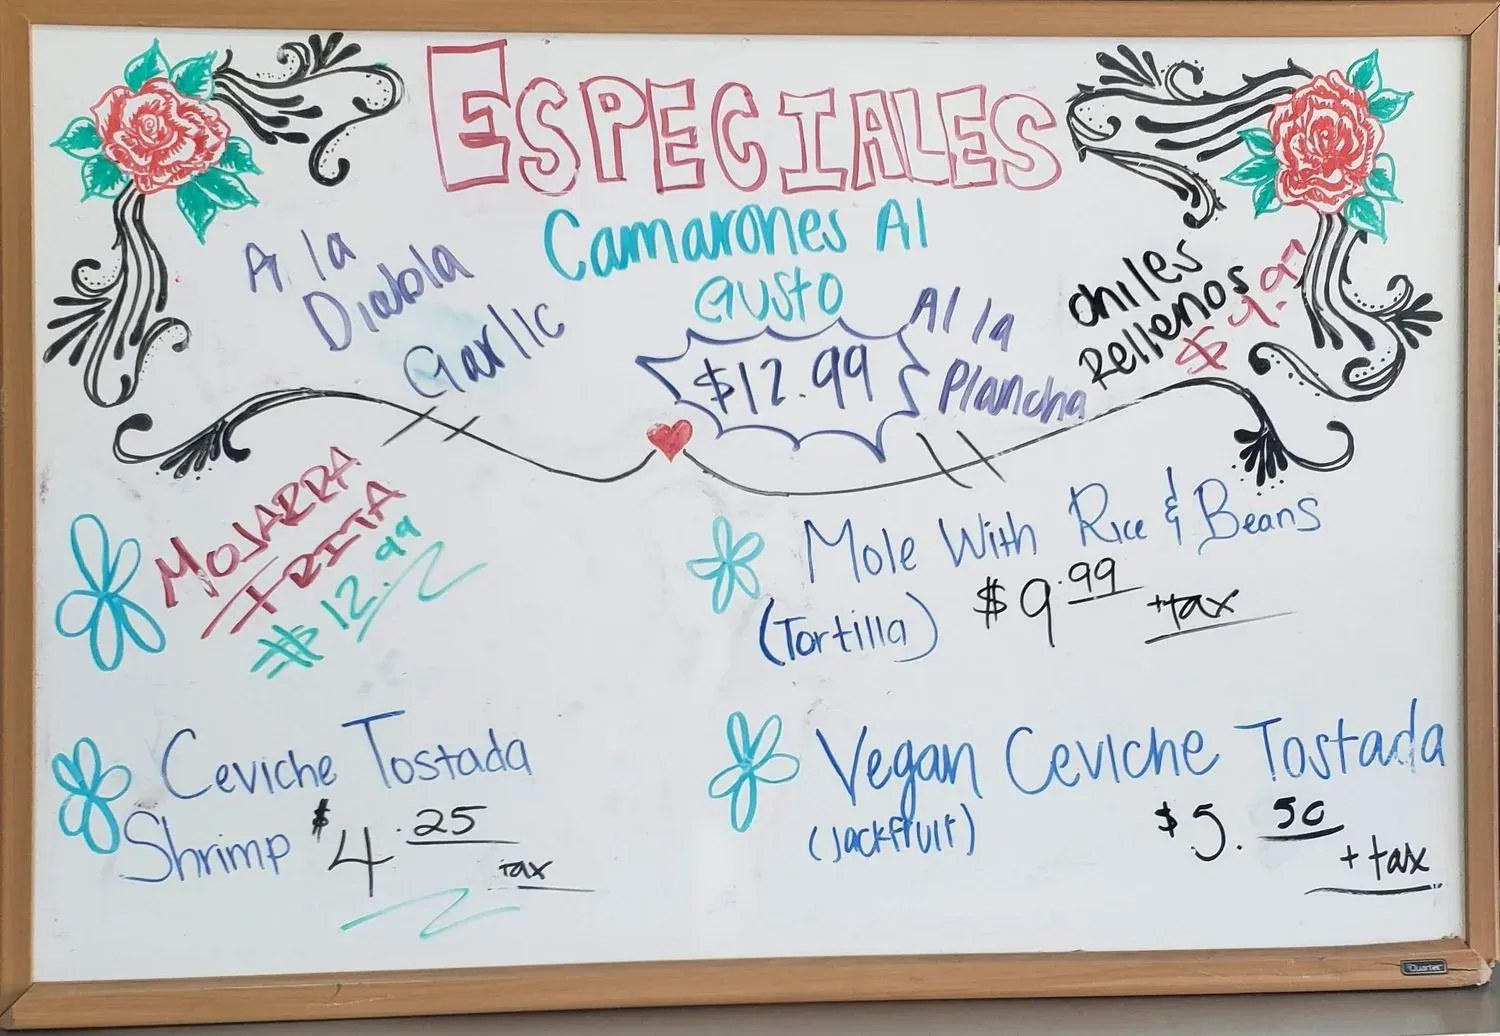 ESPECIALES
Camarones Al
Gusto
$12.99
A la
Diabla
Garlic
Al la
Plancha
chiles
Rellenos
$9.99
MOJARRA
FRITA
$12.99
Mole With Rice & Beans
(Tortilla) $9.99 +tax
Ceviche Tostada
Shrimp $4.25
tax
Vegan Ceviche Tostada
(Jackfruit) $5.50
+ tax
Quartet